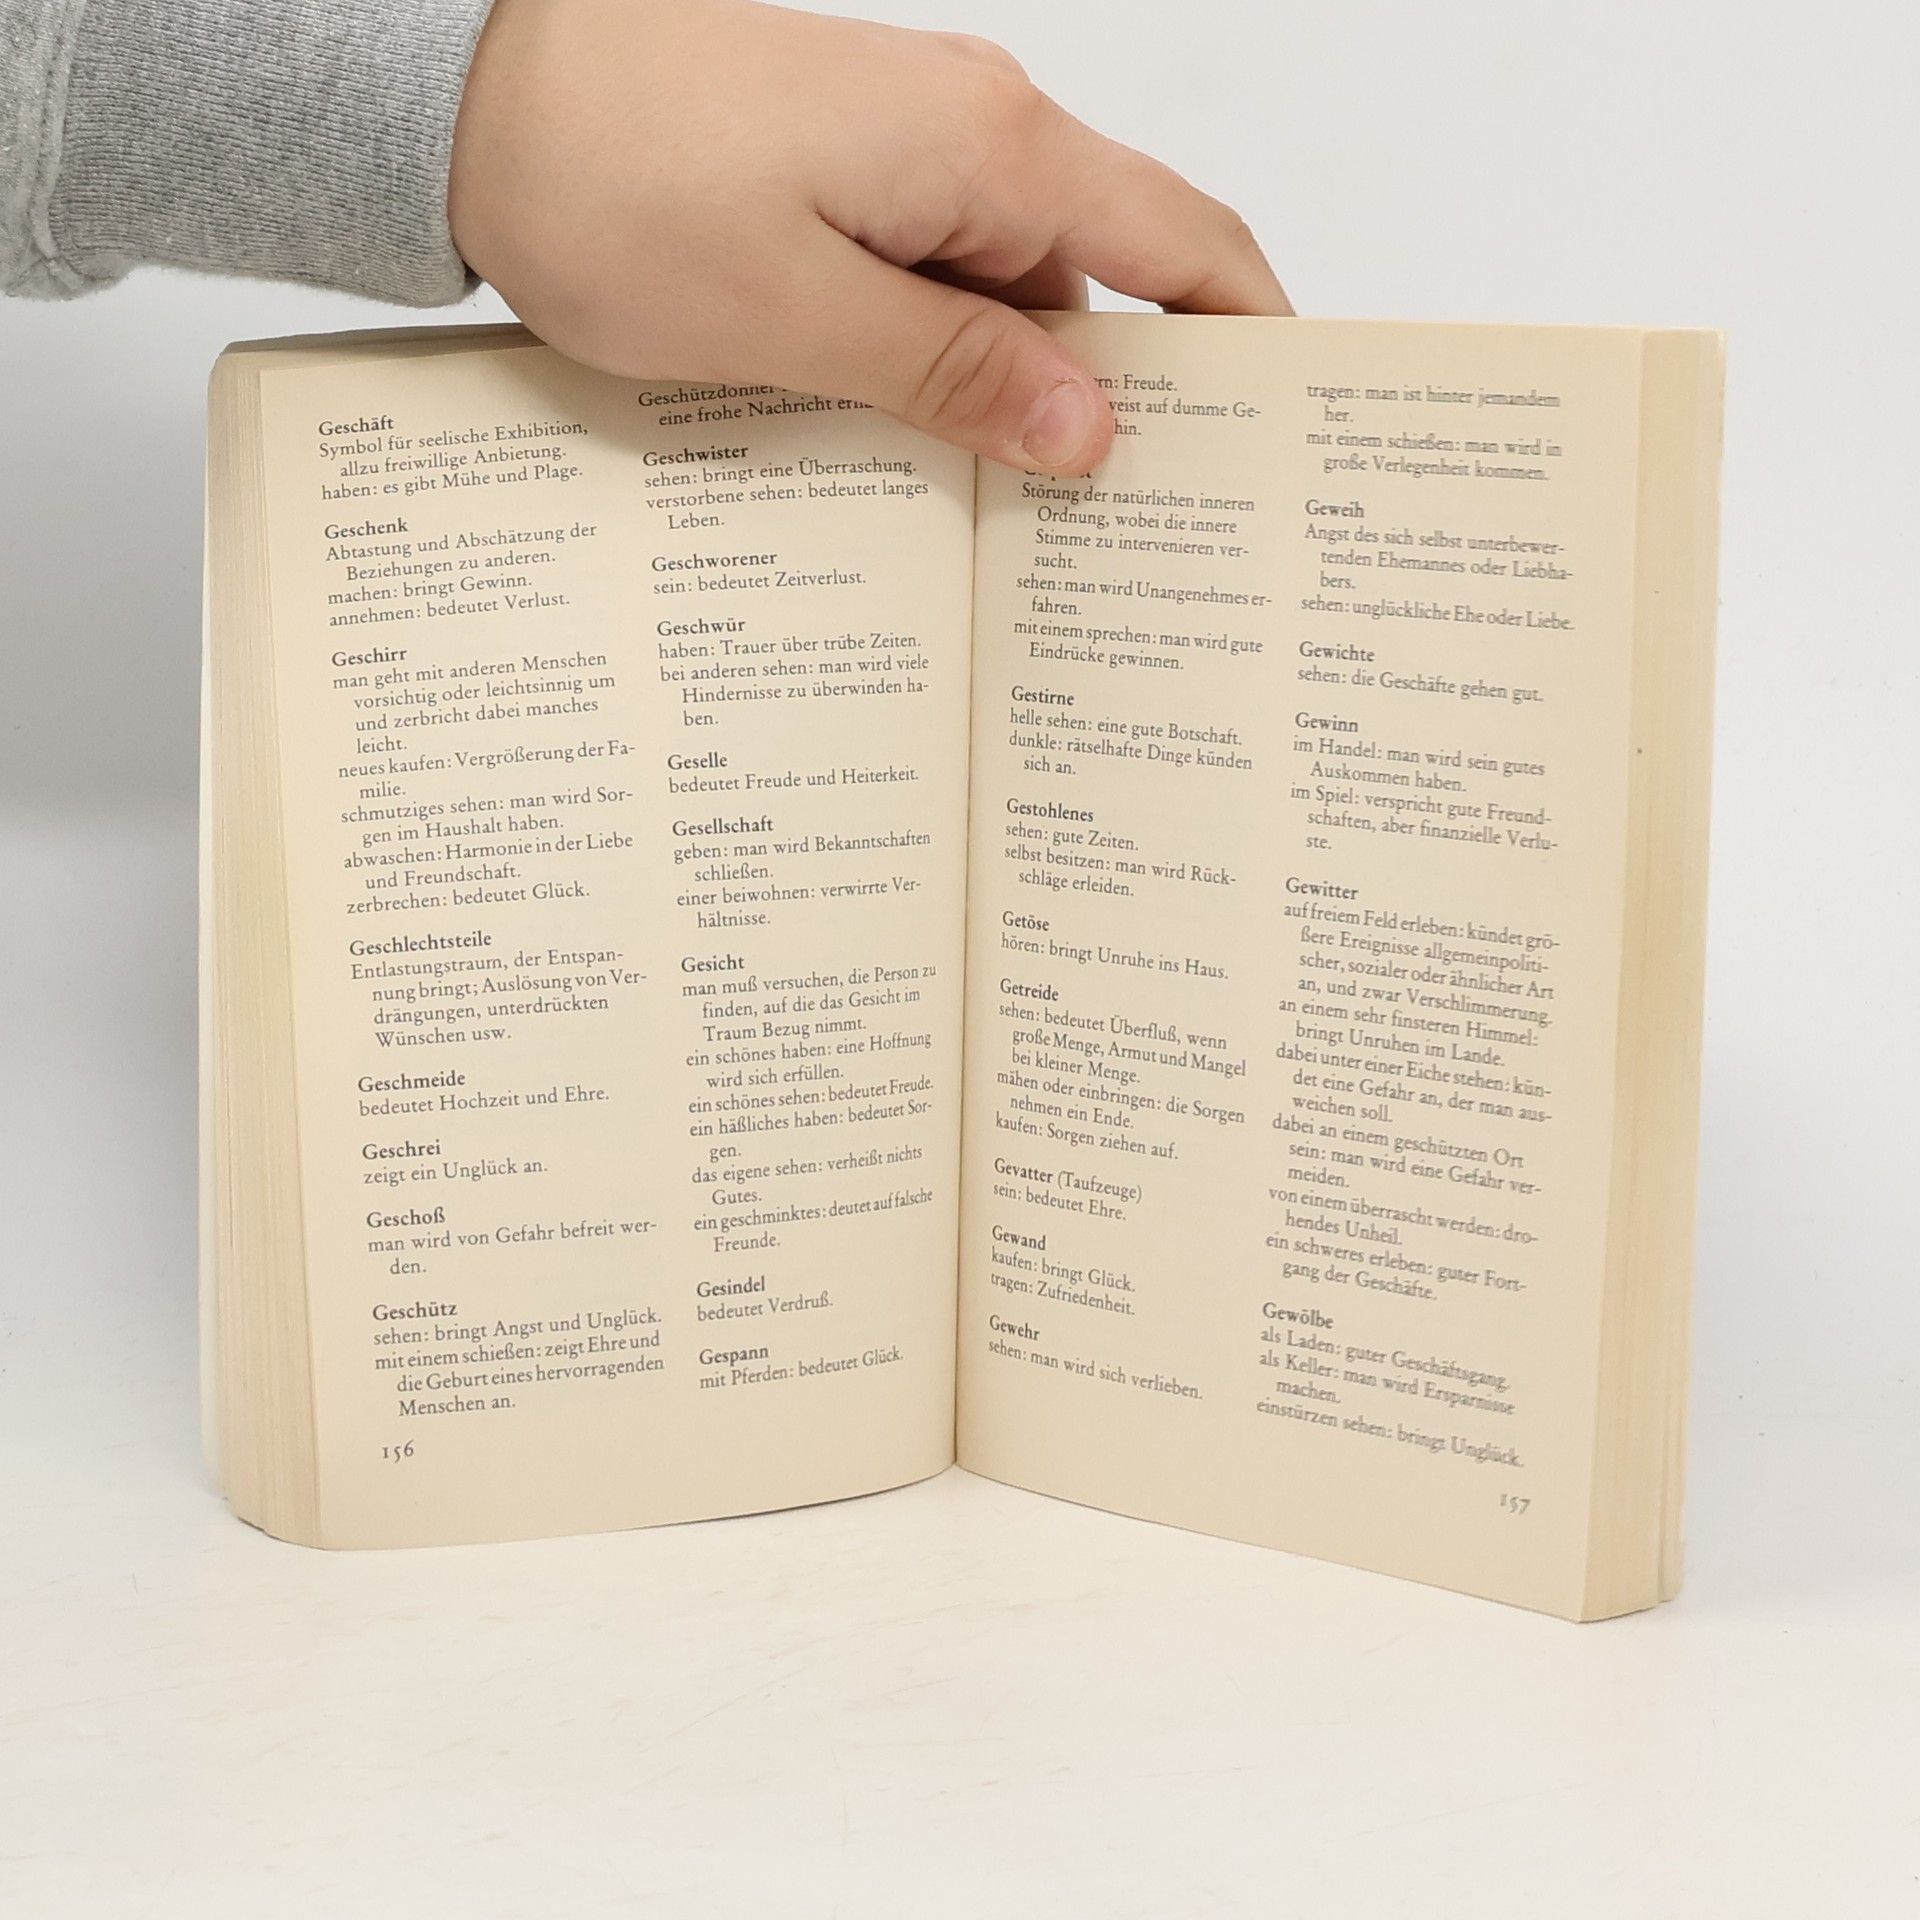 Geschäft
Symbol für seelische Exhibition,
allzu freiwillige Anbietung.
haben: es gibt Mühe und Plage.
Geschenk
Abtastung und Abschätzung der
Beziehungen zu anderen.
machen: bringt Gewinn.
annehmen: bedeutet Verlust.
Geschirr
man geht mit anderen Menschen
vorsichtig oder leichtsinnig um
und zerbricht dabei manches
leicht.
neues kaufen: Vergrößerung der Fa-
milie.
schmutziges sehen: man wird Sor-
gen im Haushalt haben.
abwaschen: Harmonie in der Liebe
und Freundschaft.
zerbrechen: bedeutet Glück.
Geschlechtsteile
Entlastungstraum, der Entspan-
nung bringt; Auslösung von Ver-
drängungen, unterdrückten
Wünschen usw.
Geschmeide
bedeutet Hochzeit und Ehre.
Geschrei
zeigt ein Unglück an.
Geschoß
man wird von Gefahr befreit wer-
den.
Geschütz
sehen: bringt Angst und Unglück.
mit einem schießen: zeigt Ehre und
die Geburt eines hervorragenden
Menschen an.
156
Geschützdonner
eine frohe Nachricht
Geschwister
sehen: bringt eine Überraschung.
verstorbene sehen: bedeutet langes
Leben.
Geschworener
sein: bedeutet Zeitverlust.
Geschwür
haben: Trauer über trübe Zeiten.
bei anderen sehen: man wird viele
Hindernisse zu überwinden ha-
ben.
Geselle
bedeutet Freude und Heiterkeit.
Gesellschaft
geben: man wird Bekanntschaften
schließen.
einer beiwohnen: verwirrte Ver-
hältnisse.
Gesicht
man muß versuchen, die Person zu
finden, auf die das Gesicht im
Traum Bezug nimmt.
ein schönes haben: eine Hoffnung
wird sich erfüllen.
ein schönes sehen: bedeutet Freude.
ein häßliches haben: bedeutet Sor-
gen.
das eigene sehen: verheißt nichts
Gutes.
ein geschminktes: deutet auf falsche
Freunde.
Gesindel
bedeutet Verdruß.
Gespann
mit Pferden: bedeutet Glück.
Freude.
auf dumme Ge-
hin.
Störung der natürlichen inneren
Ordnung, wobei die innere
Stimme zu intervenieren ver-
sucht.
sehen: man wird Unangenehmes er-
fahren.
mit einem sprechen: man wird gute
Eindrücke gewinnen.
Gestirne
helle sehen: eine gute Botschaft.
dunkle: rätselhafte Dinge künden
sich an.
Gestohlenes
sehen: gute Zeiten.
selbst besitzen: man wird Rück-
schläge erleiden.
Getöse
hören: bringt Unruhe ins Haus.
Getreide
sehen: bedeutet Überfluß, wenn
große Menge, Armut und Mangel
bei kleiner Menge.
mähen oder einbringen: die Sorgen
nehmen ein Ende.
kaufen: Sorgen ziehen auf.
Gevatter (Taufzeuge)
sein: bedeutet Ehre.
Gewand
kaufen: bringt Glück.
tragen: Zufriedenheit.
Gewehr
sehen: man wird sich verlieben.
tragen: man ist hinter jemandem
her.
mit einem schießen: man wird in
große Verlegenheit kommen.
Geweih
Angst des sich selbst unterbewer-
tenden Ehemannes oder Liebha-
bers.
sehen: unglückliche Ehe oder Liebe.
Gewichte
sehen: die Geschäfte gehen gut.
Gewinn
im Handel: man wird sein gutes
Auskommen haben.
im Spiel: verspricht gute Freund-
schaften, aber finanzielle Verlu-
ste.
Gewitter
auf freiem Feld erleben: kündet grö-
ßere Ereignisse allgemeinpoliti-
scher, sozialer oder ähnlicher Art
an, und zwar Verschlimmerung.
an einem sehr finsteren Himmel:
bringt Unruhen im Lande.
dabei unter einer Eiche stehen: kün-
det eine Gefahr an, der man aus-
weichen soll.
dabei an einem geschützten Ort
sein: man wird eine Gefahr ver-
meiden.
von einem überrascht werden: dro-
hendes Unheil.
ein schweres erleben: guter Fort-
gang der Geschäfte.
Gewölbe
als Laden: guter Geschäftsgang.
als Keller: man wird Ersparnisse
machen.
einstürzen sehen: bringt Unglück.
157